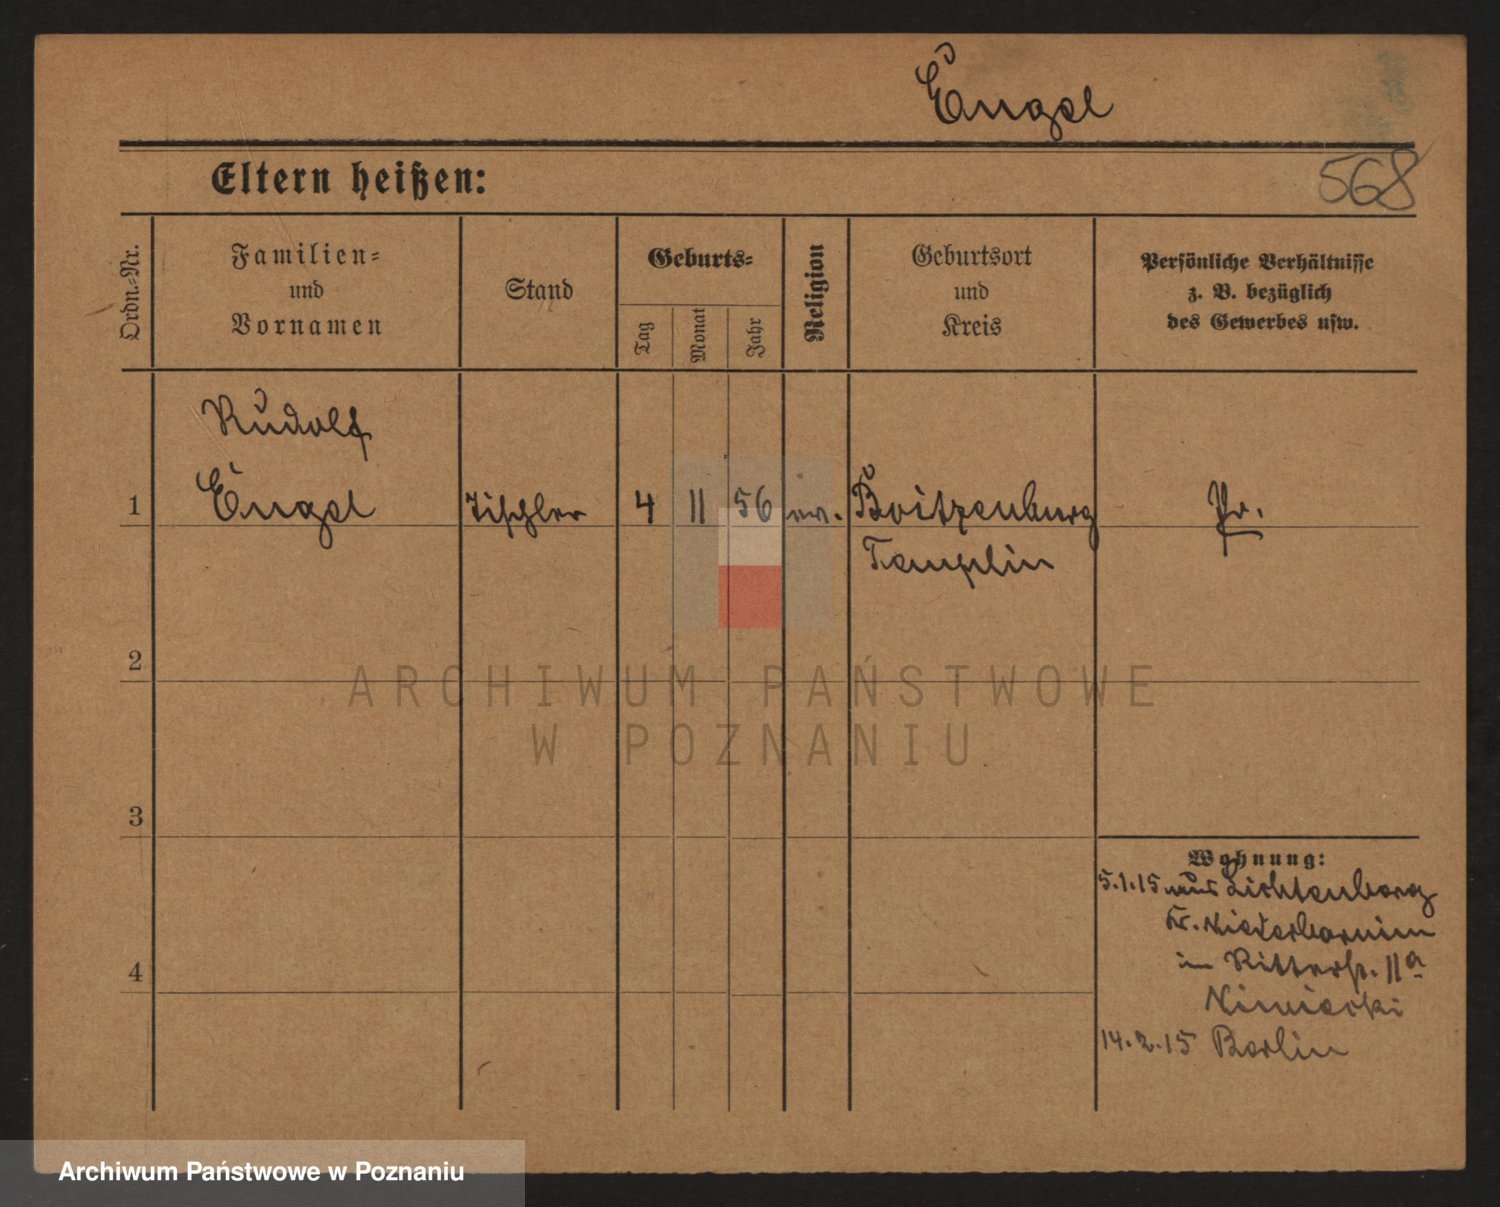 Engel
568
Eltern heißen:
Ordn.-Nr.
Familien-
und
Vornamen
Stand
Geburts-
Tag
Monat
Jahr
Religion
Geburtsort
und
Kreis
Persönliche Verhältnisse
z. B. bezüglich
des Gewerbes usw.
Rudolf
1 Engel Tischler 4 11 56 ev. Boitzenburg Pr.
Templin
2
3
4
Wohnung:
5.1.15 aus Lichtenberg
Kr. Niederbarnim
in Ritterstr. 11a
14.2.15 Berlin
ARCHIWUM PAŃSTWOWE
W POZNANIU
Archiwum Państwowe w Poznaniu